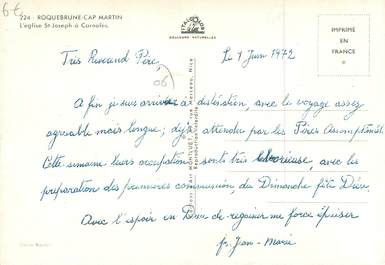 6€
224 - ROQUEBRUNE-CAP MARTIN
L'église St-Joseph à Carnolès.
COULEURS NATURELLES
IMPRIMÉ
EN
FRANCE
Très Reverend Père,
Le 1 Juin 1972
06
A fin je suis arrivé à distination, avec le voyage assez
agreable mais longue; déjà attendu par les Pères Assomptionist.
Cette semaine leurs occupation sont très laborieuse, avec les
préparation des premières communion, du Dimanche fête Dieu.
Avec l'espoir en Dieu de regainer me force épuiser
fr. Jean-Marie